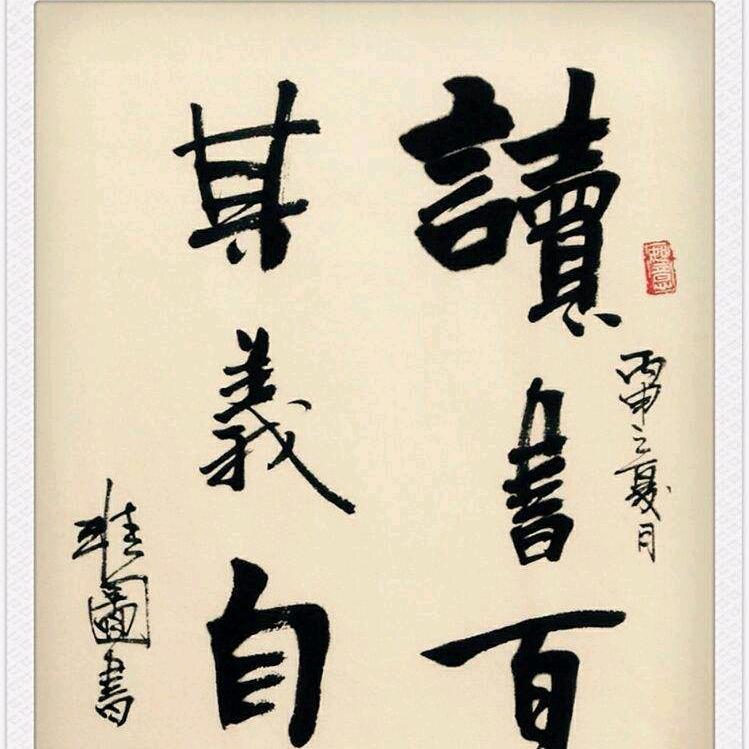 丙申之夏月
讀書百
其義自
圖書